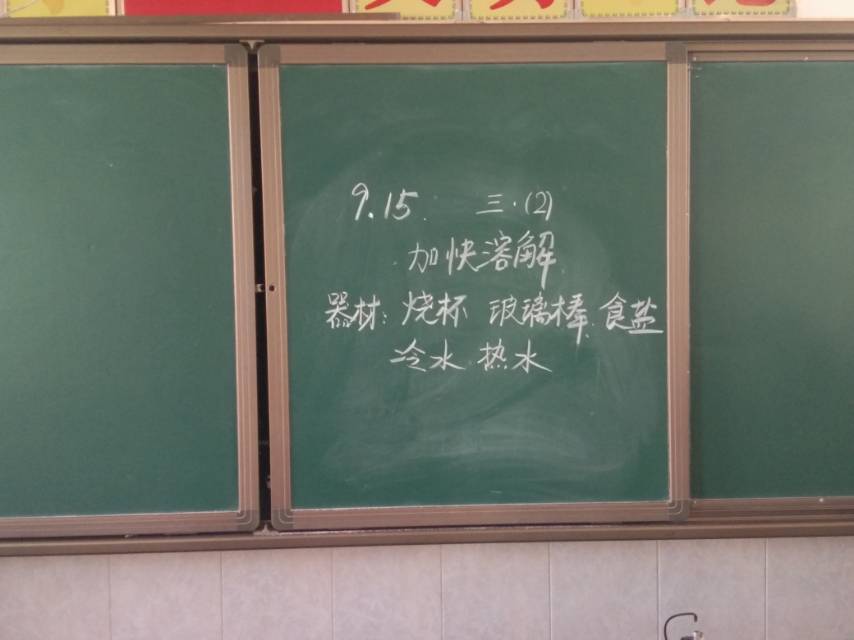 9.15. 三·(2)
加快溶解
器材: 烧杯 玻璃棒 食盐
冷水 热水